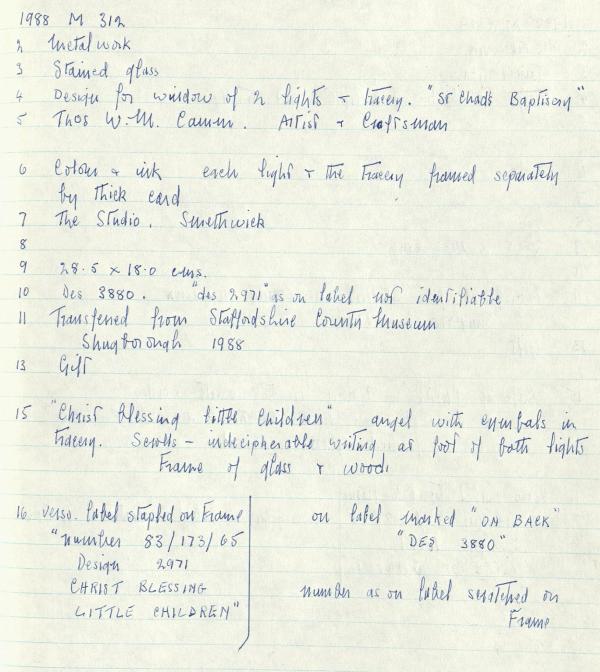 1988 M 312
2 Metalwork
3 Stained glass
4 Design for window of 2 lights + tracery. "St Chad's Baptistry"
5 Thos W.M. Camm. Artist + Craftsman
6 Colour + ink each light + the tracery framed separately
by thick card
7 The Studio. Smethwick
8
9 28.5 x 18.0 cms.
10 Des 3880. "des 2971" as on label not identifiable
11 Transferred from Staffordshire County Museum
Shugborough 1988
13 Gift
15 "Christ blessing little children" angel with cymbals in
tracery. Scrolls - indecipherable writing at foot of both lights
Frame of glass + wood.
16 verso. label stapled on Frame
"number 83/173/65
Design 2971
CHRIST BLESSING
LITTLE CHILDREN"
on label marked "ON BACK"
"DES 3880"
number as on label scratched on
Frame